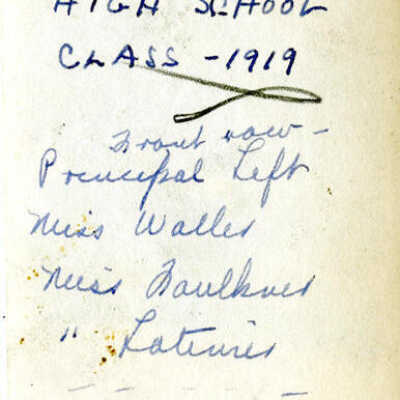 HIGH SCHOOL
CLASS - 1919
Front row -
Principal Left
Miss Waller
Miss Faulkner
" Latimer